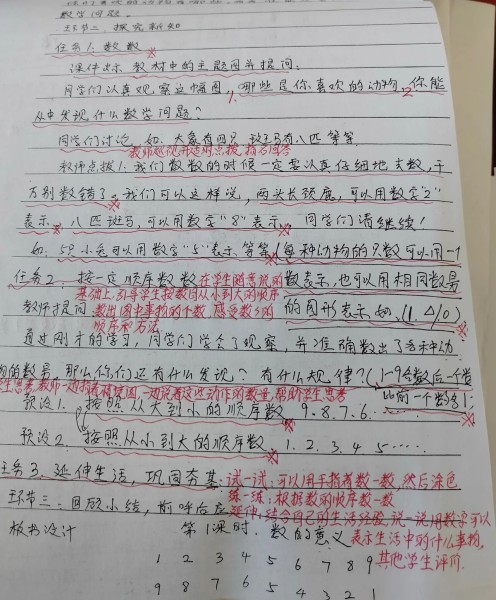 数学问题。
环节二、探究新知
任务1、数数
课件出示教材中的主题图并提问：
同学们认真观察这幅图，哪些是你喜欢的动物，你能
从中发现什么数学问题？
同学们讨论，如：大象有四只，斑马有八匹等等
教师巡视并适时点拨，指名回答
教师点拨1：我们数数的时候一定要认真仔细地去数，千
万别数错了。我们可以这样说，两头长颈鹿，可以用数字"2"
表示，八匹斑马，可以用数字"8"表示，同学们请继续！
如：5只小兔可以用数字"5"表示等等（每种动物的只数可以用一
任务2：按一定顺序数数 在学生随意说的 数表示，也可以用相同数量
基础上，引导学生按数目从小到大的顺序
教师提问 数出图中事物的个数，感受数的 的图形表示，如(1、△/○)
顺序和方法
通过刚才的学习，同学们学会了观察，并准确数出了各种动
物的数量，那么你们还有什么发现？有什么规律？(1-9各数后一个数
学生思考，教师一边指着 一边说着这些动作的数量，帮助学生思考 比前一个数多1
预设1、按照从大到小的顺序数 9、8、7、6……
预设2、按照从小到大的顺序数、1、2、3、4、5……
任务3、延伸生活，巩固夯基 试一试：可以用手指着数一数，然后涂色
练一练：根据数的顺序数一数
环节三：回顾小结，前呼后应 延伸：结合自己的生活经验，说一说用数字可以
板书设计 第1课时、数的意义 表示生活中的什么事物，
其他学生评价
1 2 3 4 5 6 7 8 9
9 8 7 6 5 4 3 2 1